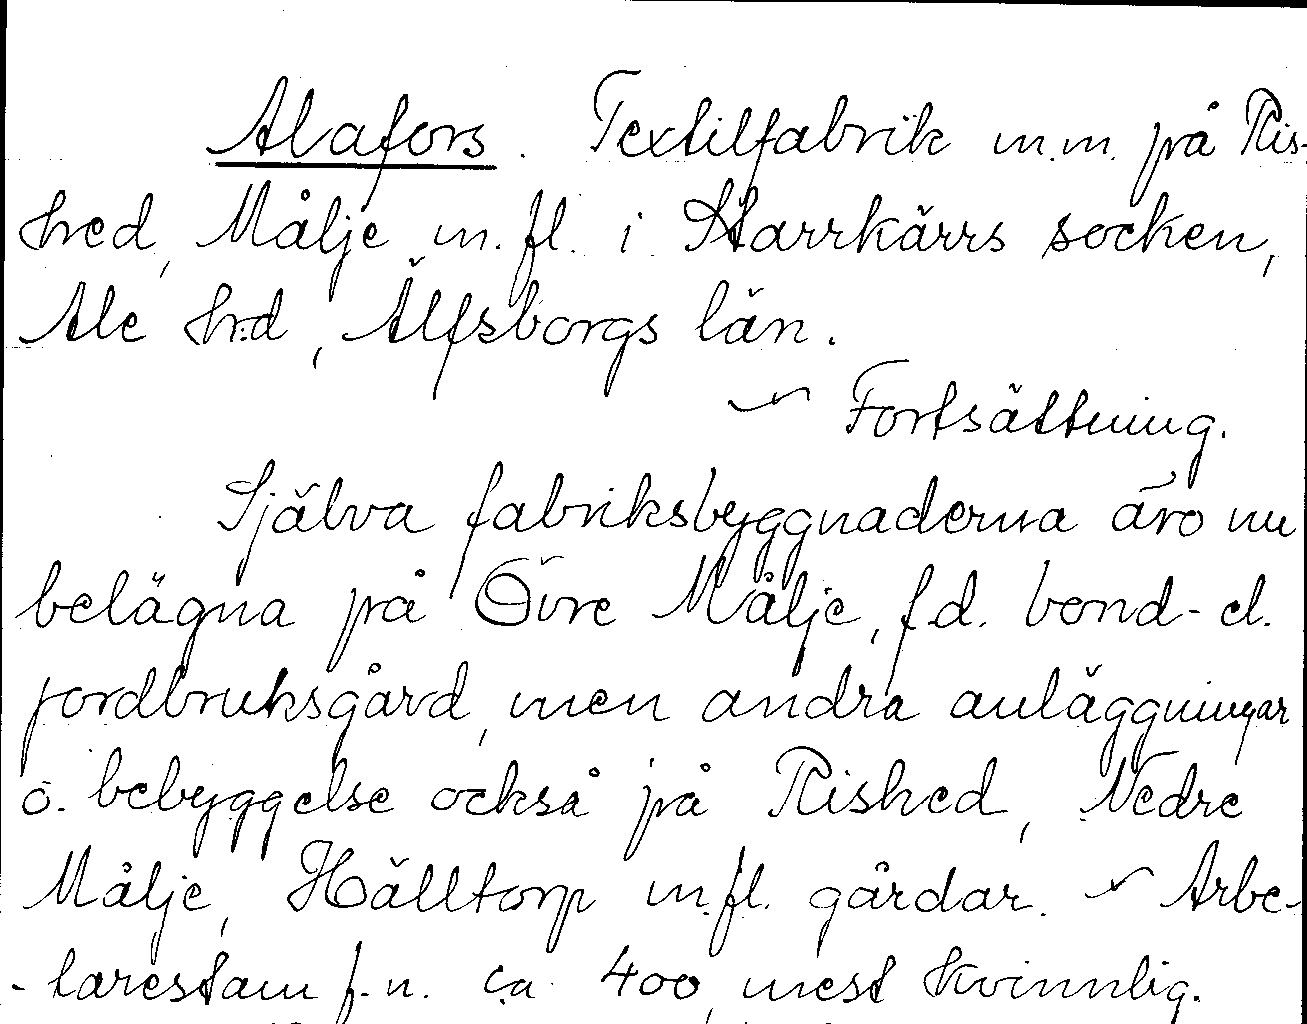 Alafors. Textilfabrik m.m. på Ris-
hed, Målje m.fl. i Starrkärrs socken,
Ale hrd, Älfsborgs län.
~ Fortsättning.
Själva fabriksbyggnaderna äro nu
belägna på Övre Målje, f.d. bond- el.
jordbruksgård, men andra anläggningar
o. bebyggelse också på Rished, Nedre
Målje, Hälltorp m.fl. gårdar. ~ Arbe-
-tarestam f.n. ca 400, mest kvinnlig.